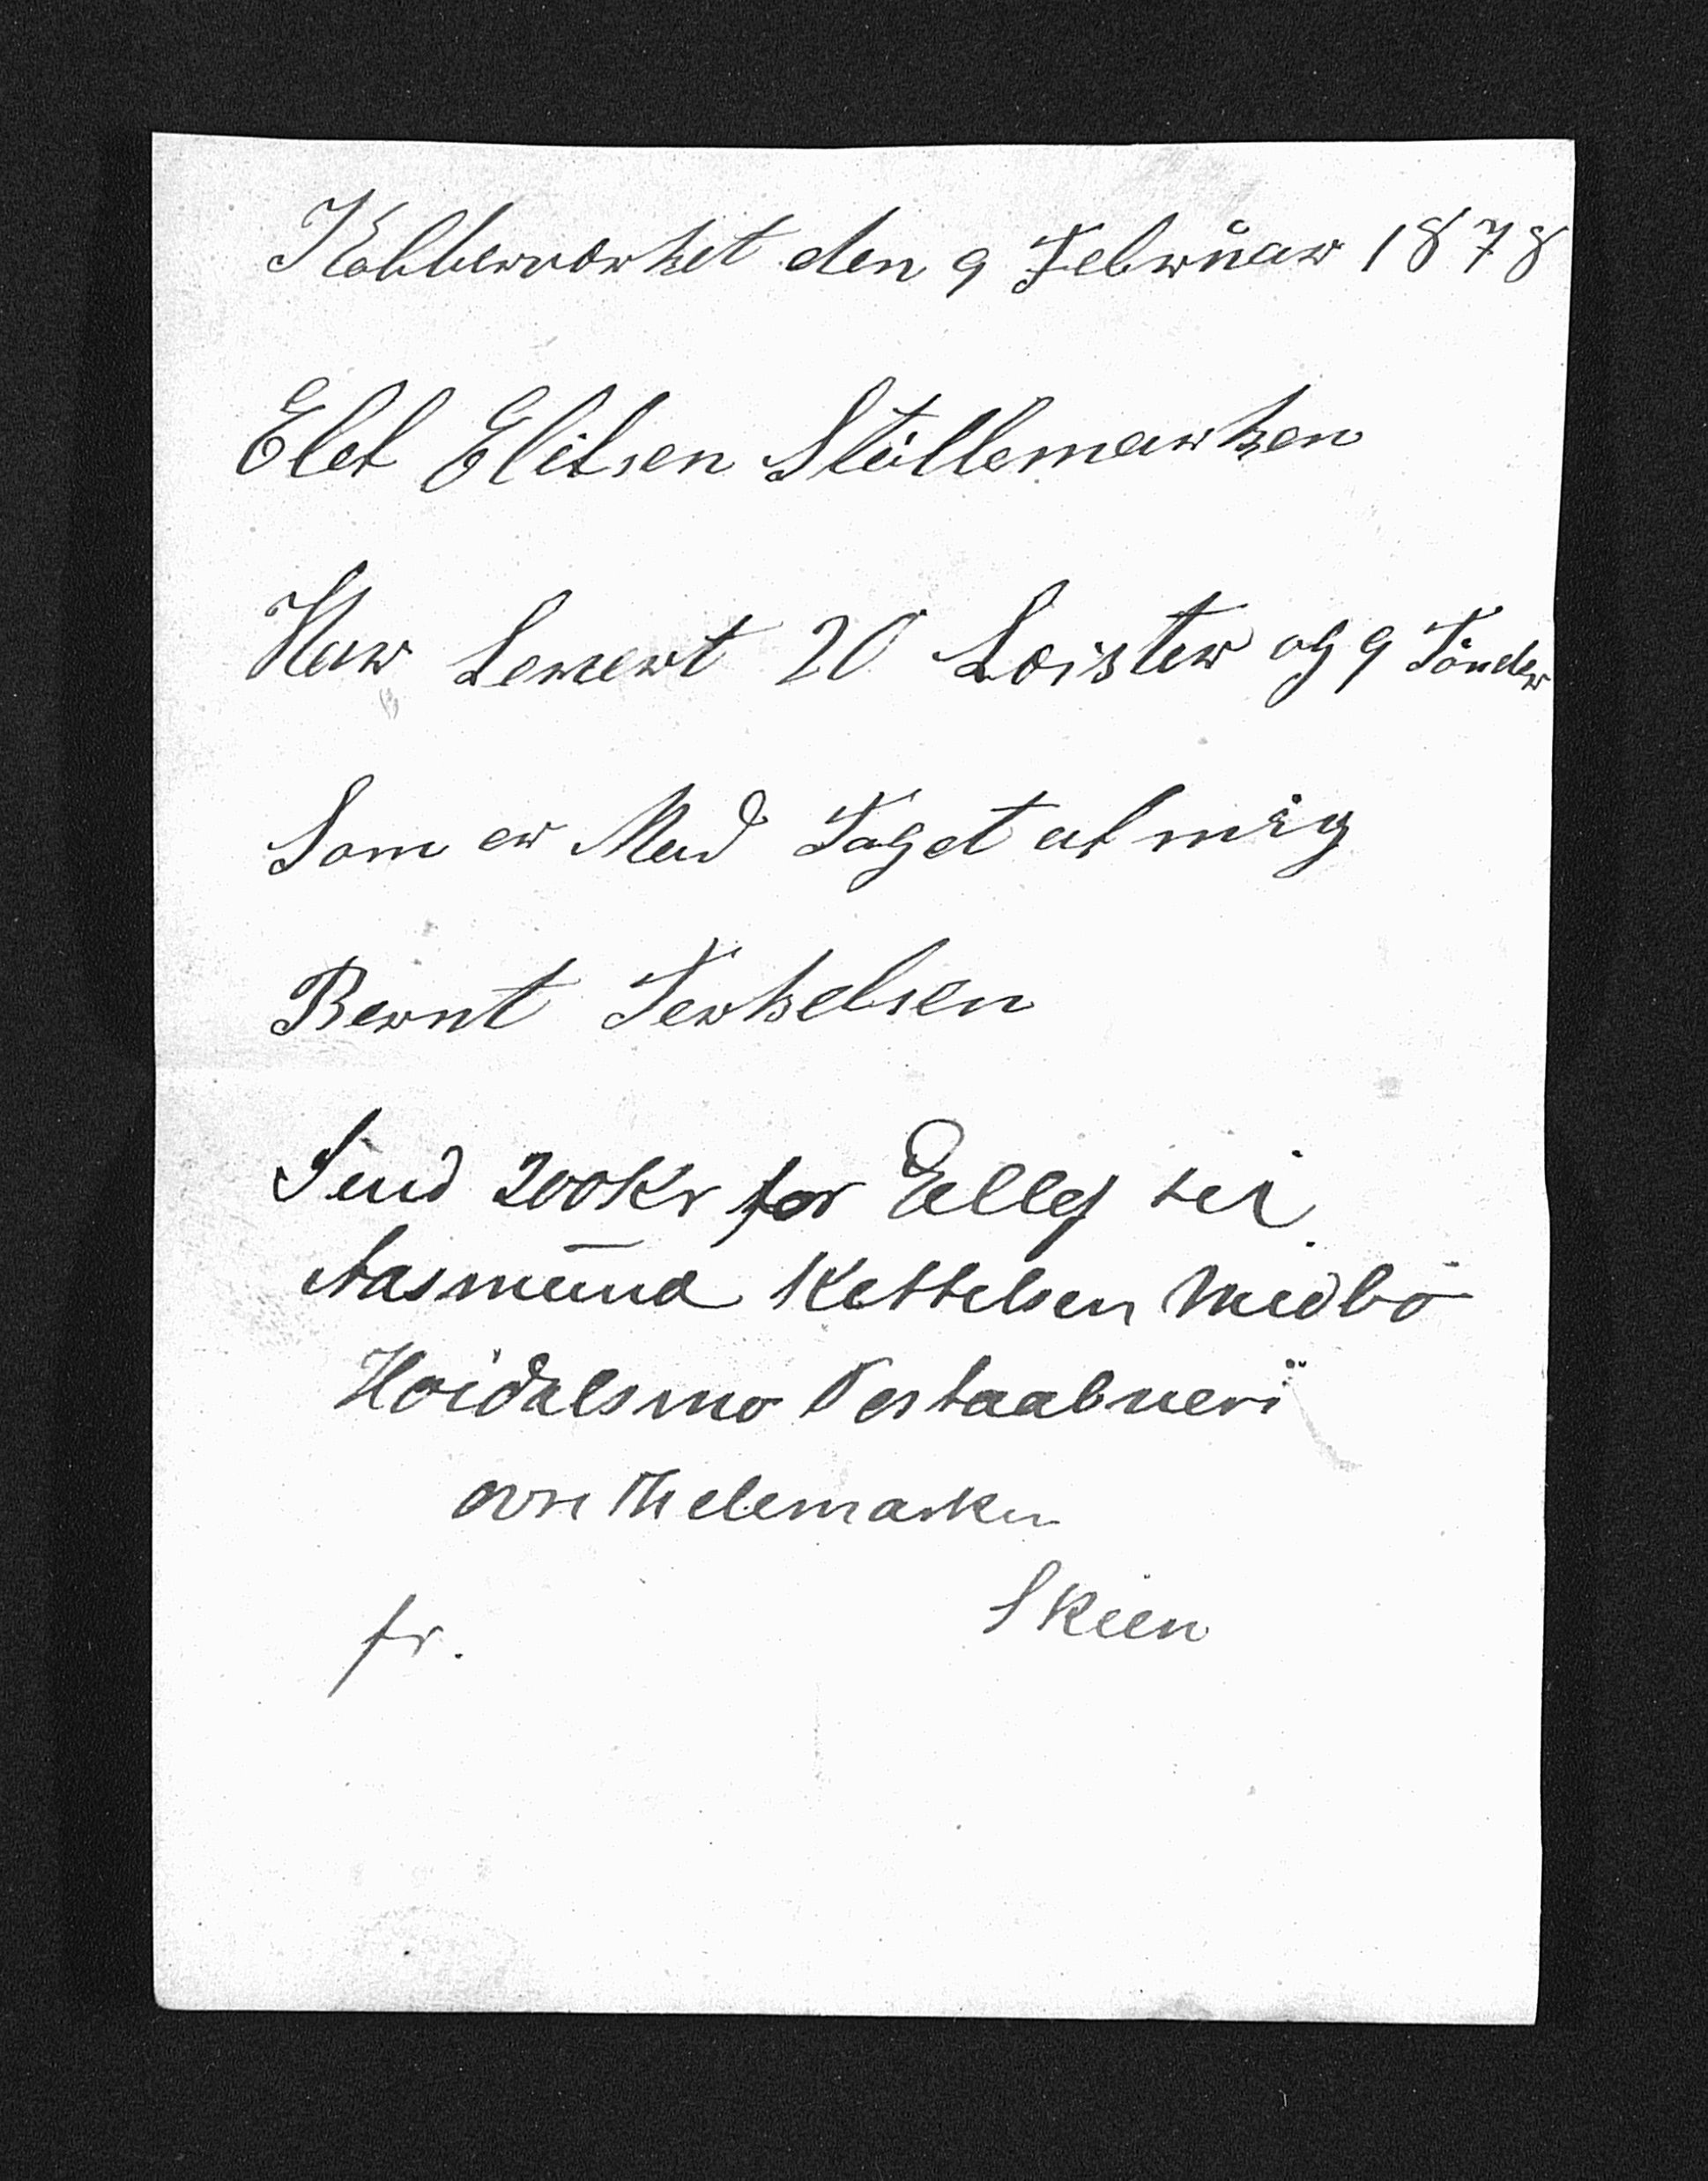 Kobberværket den 9 Februar 1878
Elef Elifsen Stullemarken
Har Levert 20 Læster og 9 Tönder
Som er Mod Taget af mig
Bernt Terkelsen
Send 200 Kr for Ellef til
Aasmund Kettelsen Midbö
Hoidalsmo Postaabneri
övre Thelemarken
Skien
fr.